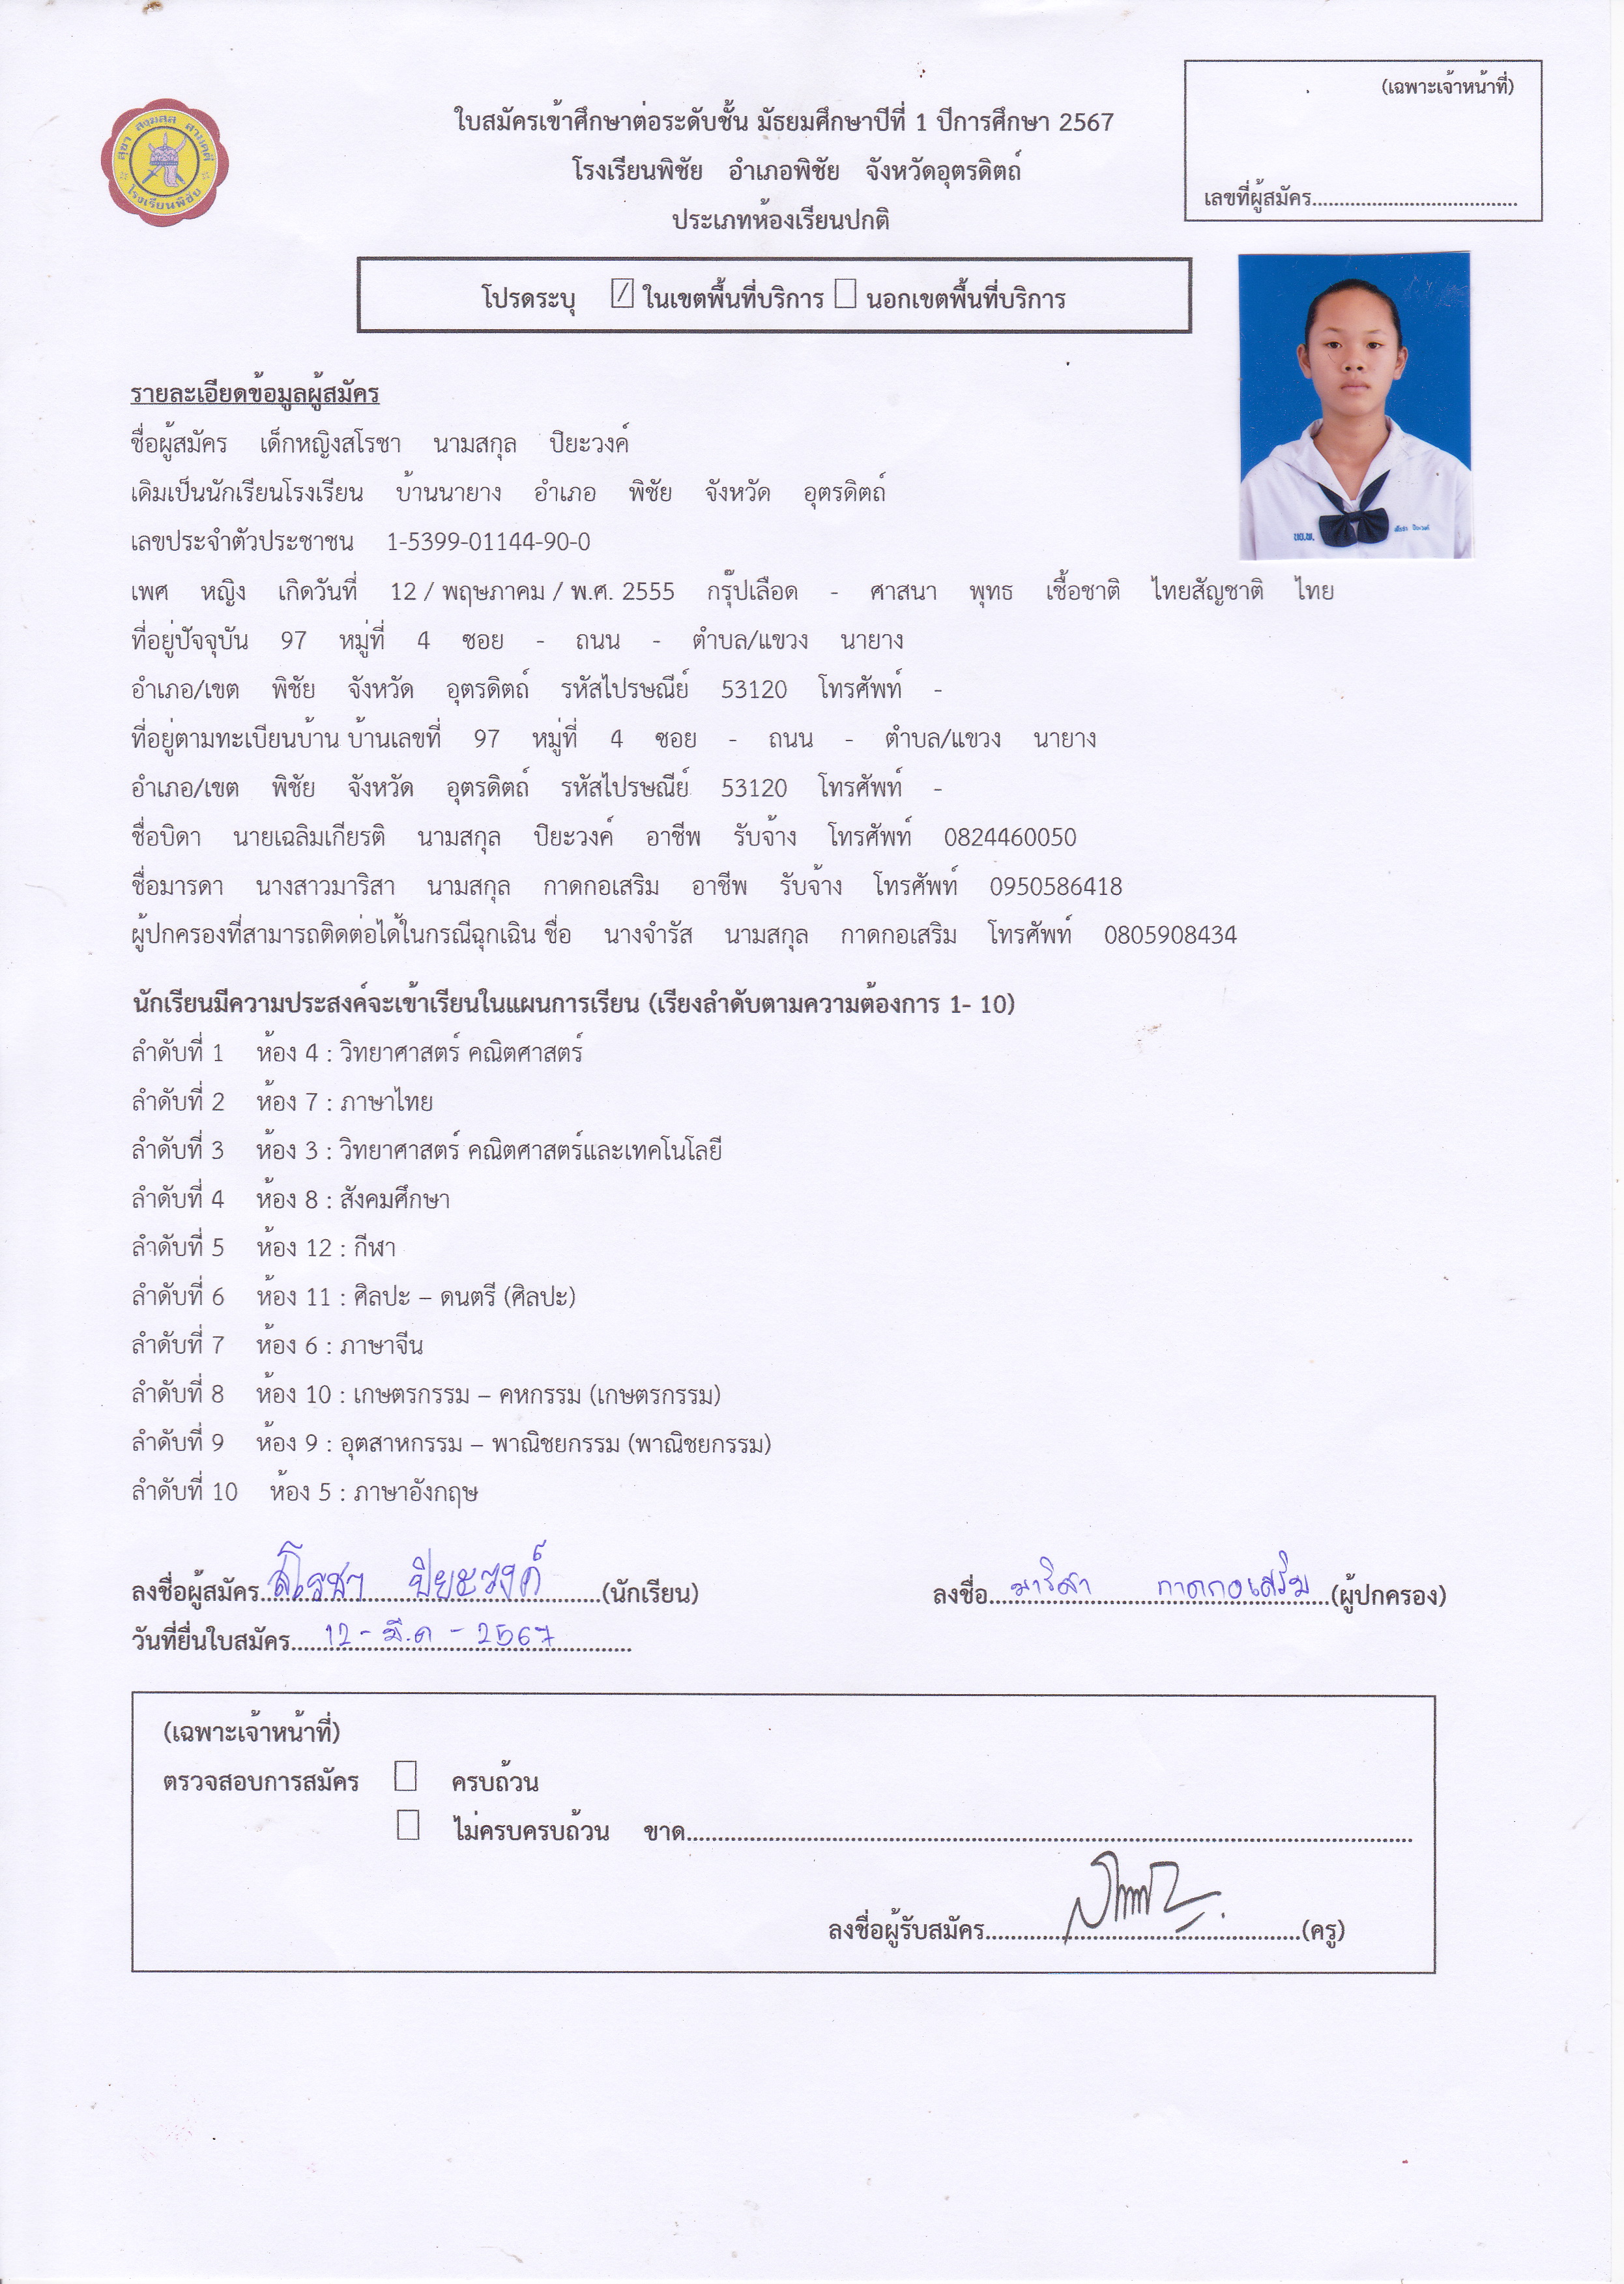 (เฉพาะเจ้าหน้าที่)
เลขที่ผู้สมัคร
โรงเรียนพิชัย
ใบสมัครเข้าศึกษาต่อระดับชั้น มัธยมศึกษาปีที่ 1 ปีการศึกษา 2567
โรงเรียนพิชัย อำเภอพิชัย จังหวัดอุตรดิตถ์
ประเภทห้องเรียนปกติ
โปรดระบุ ☑ ในเขตพื้นที่บริการ ☐ นอกเขตพื้นที่บริการ
รายละเอียดข้อมูลผู้สมัคร
ชื่อผู้สมัคร เด็กหญิงสโรชา นามสกุล ปิยะวงค์
เดิมเป็นนักเรียนโรงเรียน บ้านนายาง อำเภอ พิชัย จังหวัด อุตรดิตถ์
เลขประจำตัวประชาชน 1-5399-01144-90-0
เพศ หญิง เกิดวันที่ 12 / พฤษภาคม / พ.ศ. 2555 กรุ๊ปเลือด - ศาสนา พุทธ เชื้อชาติ ไทยสัญชาติ ไทย
ที่อยู่ปัจจุบัน 97 หมู่ที่ 4 ซอย - ถนน - ตำบล/แขวง นายาง
อำเภอ/เขต พิชัย จังหวัด อุตรดิตถ์ รหัสไปรษณีย์ 53120 โทรศัพท์ -
ที่อยู่ตามทะเบียนบ้าน บ้านเลขที่ 97 หมู่ที่ 4 ซอย - ถนน - ตำบล/แขวง นายาง
อำเภอ/เขต พิชัย จังหวัด อุตรดิตถ์ รหัสไปรษณีย์ 53120 โทรศัพท์ -
ชื่อบิดา นายเฉลิมเกียรติ นามสกุล ปิยะวงค์ อาชีพ รับจ้าง โทรศัพท์ 0824460050
ชื่อมารดา นางสาวมาริสา นามสกุล กาดกอเสริม อาชีพ รับจ้าง โทรศัพท์ 0950586418
ผู้ปกครองที่สามารถติดต่อได้ในกรณีฉุกเฉิน ชื่อ นางจำรัส นามสกุล กาดกอเสริม โทรศัพท์ 0805908434
นักเรียนมีความประสงค์จะเข้าเรียนในแผนการเรียน (เรียงลำดับตามความต้องการ 1- 10)
ลำดับที่ 1 ห้อง 4 : วิทยาศาสตร์ คณิตศาสตร์
ลำดับที่ 2 ห้อง 7 : ภาษาไทย
ลำดับที่ 3 ห้อง 3 : วิทยาศาสตร์ คณิตศาสตร์และเทคโนโลยี
ลำดับที่ 4 ห้อง 8 : สังคมศึกษา
ลำดับที่ 5 ห้อง 12 : กีฬา
ลำดับที่ 6 ห้อง 11 : ศิลปะ – ดนตรี (ศิลปะ)
ลำดับที่ 7 ห้อง 6 : ภาษาจีน
ลำดับที่ 8 ห้อง 10 : เกษตรกรรม – คหกรรม (เกษตรกรรม)
ลำดับที่ 9 ห้อง 9 : อุตสาหกรรม – พาณิชยกรรม (พาณิชยกรรม)
ลำดับที่ 10 ห้อง 5 : ภาษาอังกฤษ
ลงชื่อผู้สมัคร สโรชา ปิยะวงค์ (นักเรียน) ลงชื่อ มาริสา กาดกอเสริม (ผู้ปกครอง)
วันที่ยื่นใบสมัคร 12 - มี.ค - 2567
(เฉพาะเจ้าหน้าที่)
ตรวจสอบการสมัคร ☐ ครบถ้วน
☐ ไม่ครบครบถ้วน ขาด
ลงชื่อผู้รับสมัคร (ครู)